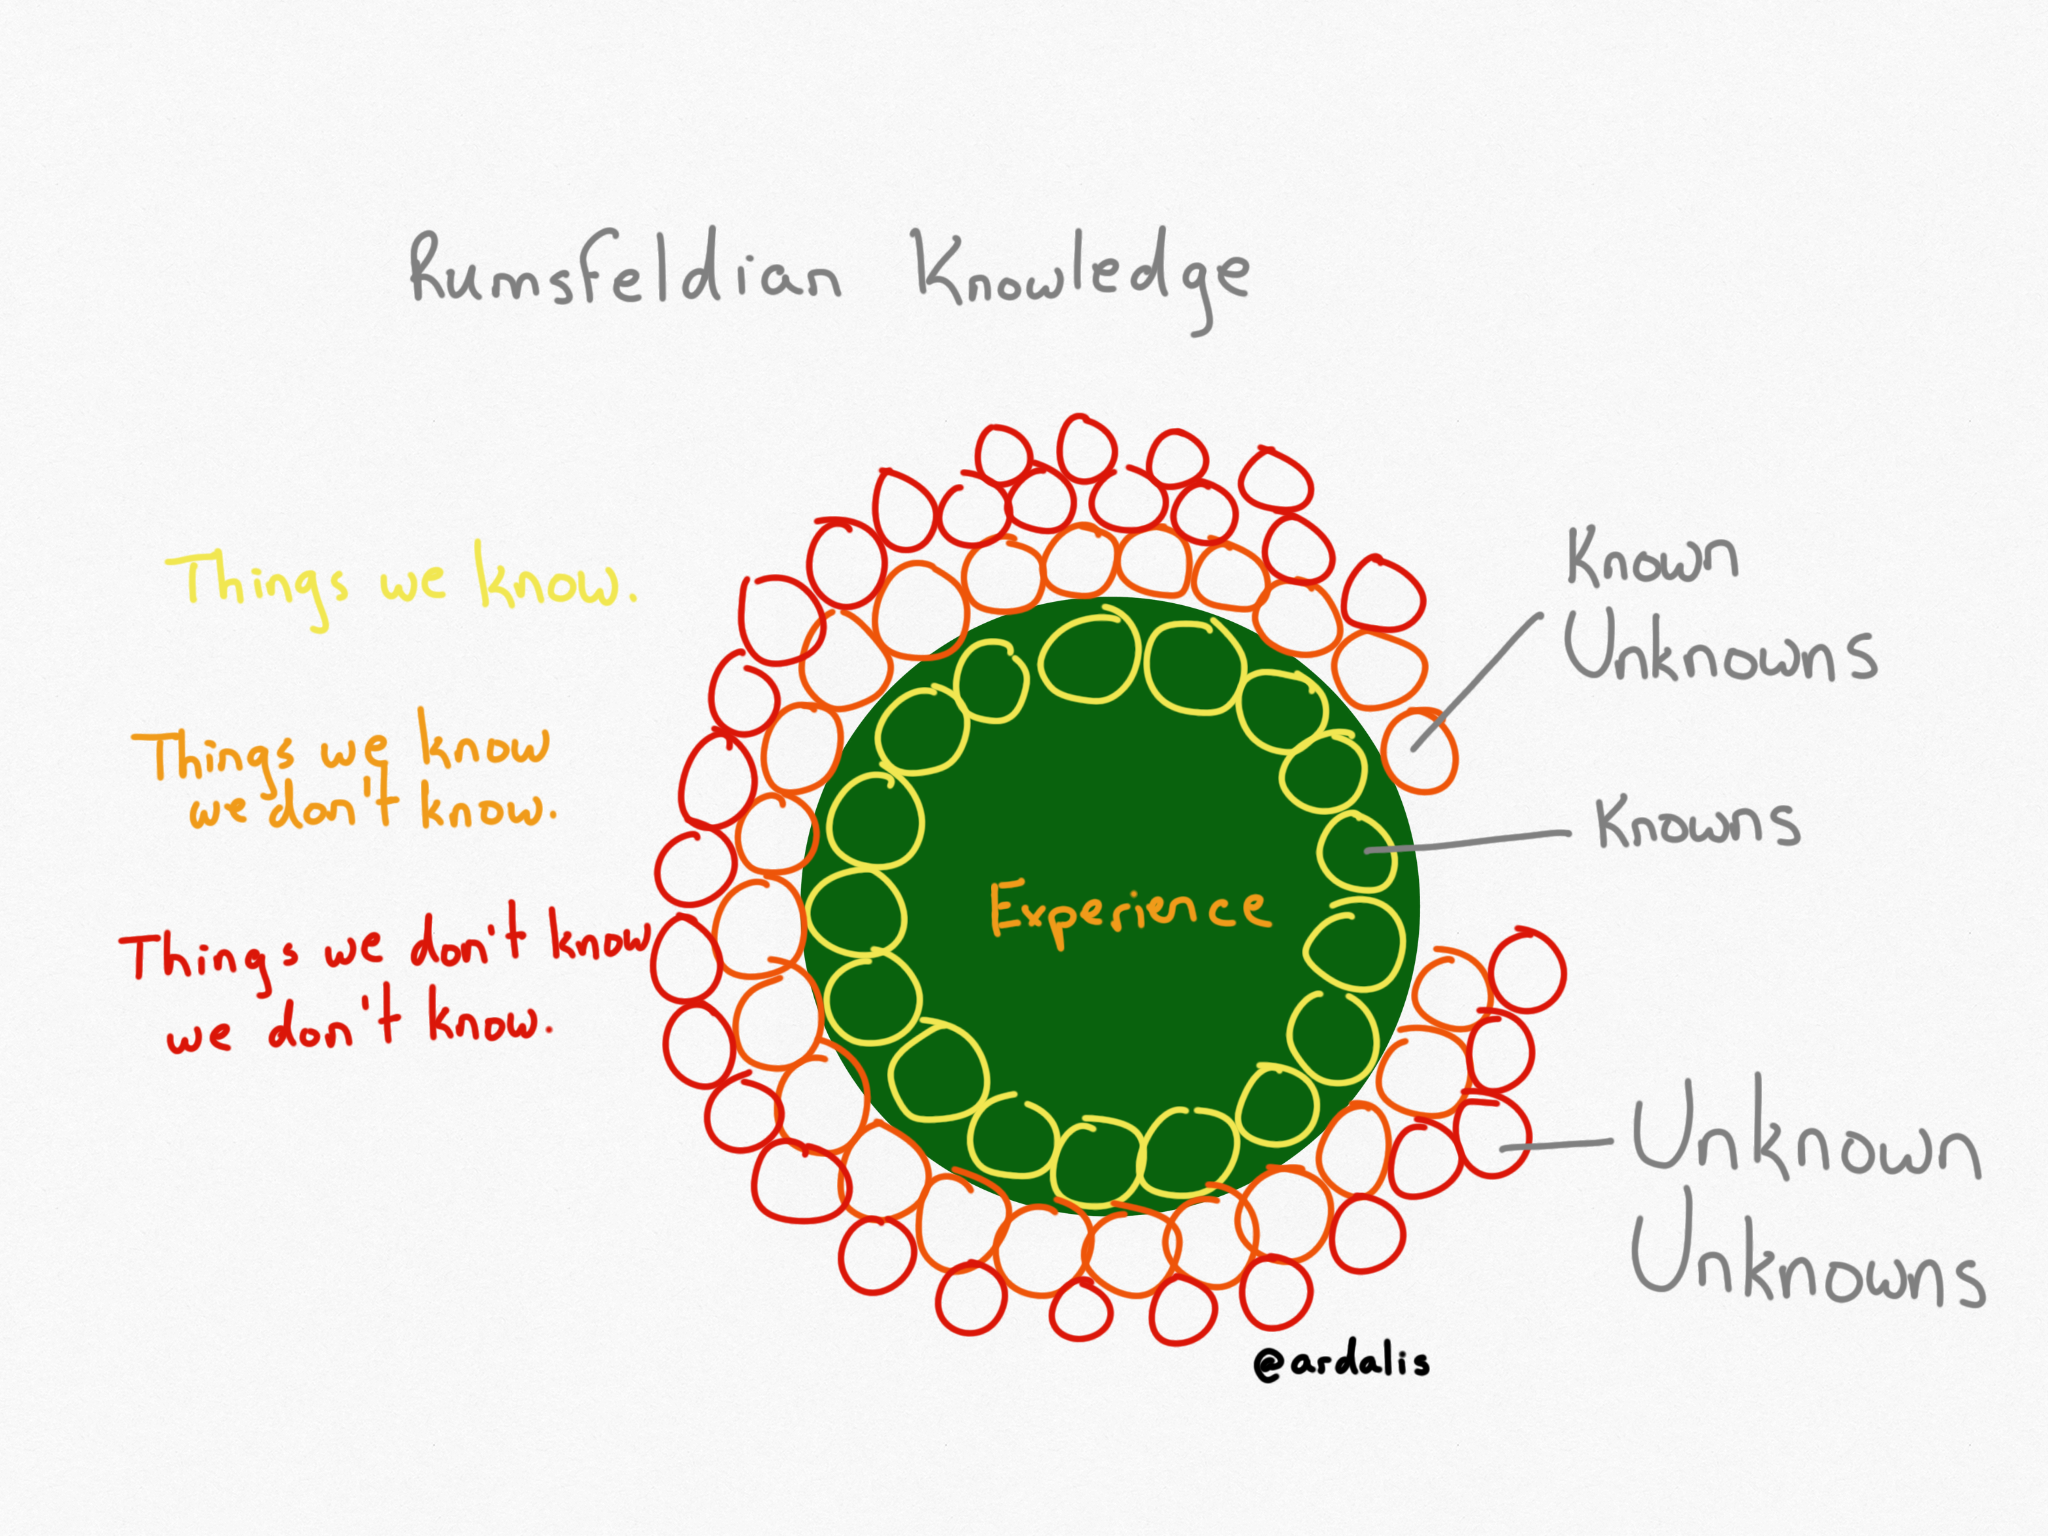 Rumsfeldian Knowledge
Things we know.
Things we know
we don't know.
Things we don't know
we don't know.
Experience
Known
Unknowns
Knowns
Unknown
Unknowns
@ardalis